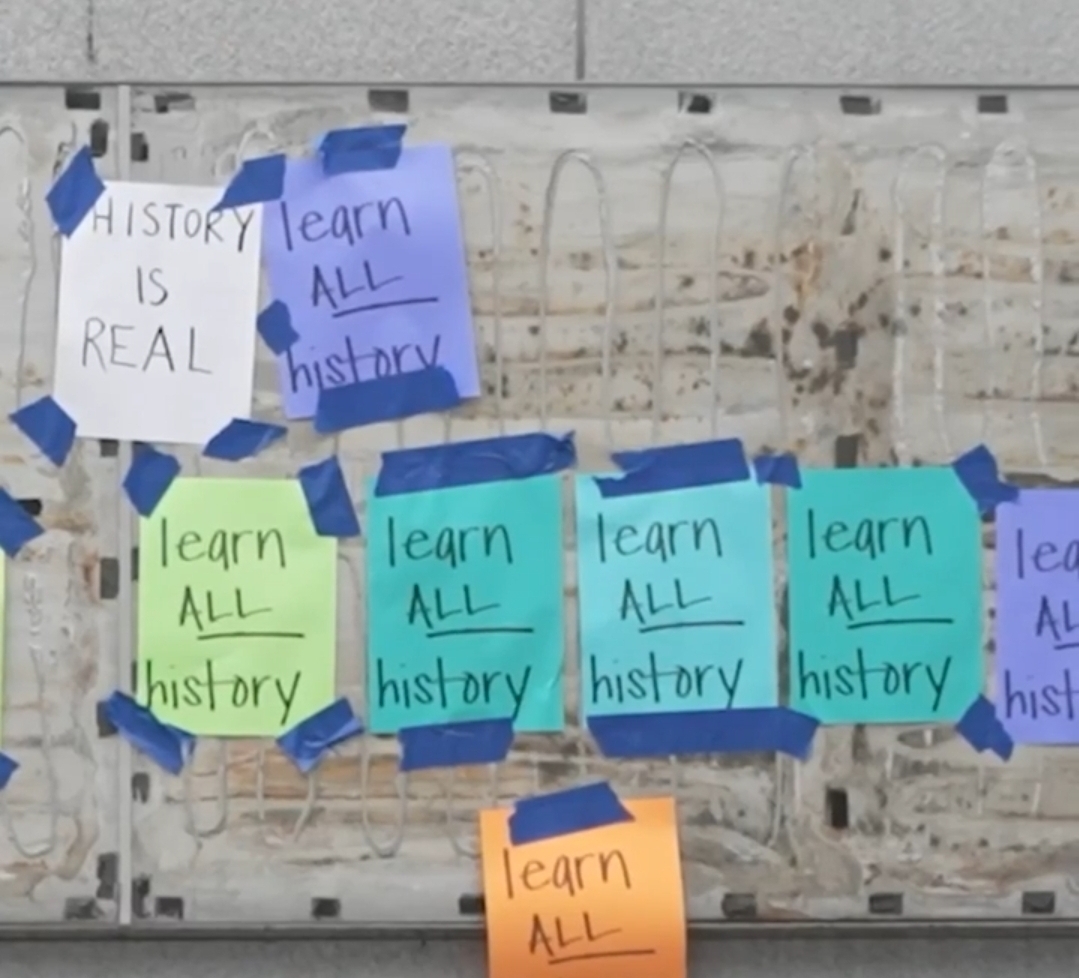 HISTORY
IS
REAL
learn
ALL
history
learn
ALL
history
learn
ALL
history
learn
ALL
history
learn
ALL
history
lea
AL
hist
learn
ALL